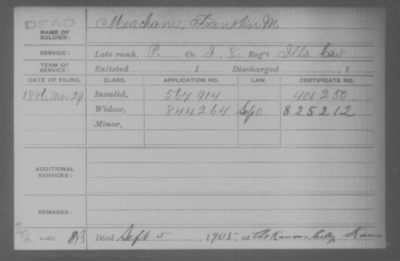 DEAD
NAME OF SOLDIER: Meacham, Franklin M
SERVICE: Late rank, P. Co. I, 8 Reg't Ills Cav
TERM OF SERVICE: Enlisted , 1 Discharged , 1
DATE OF FILING. CLASS. APPLICATION NO. LAW. CERTIFICATE NO.
29 Invalid, 567 914 401 250
Widow, 844264 825212
Minor,
ADDITIONAL SERVICES:
REMARKS:
Died Sept 5, 1905, at Kansas City Kans